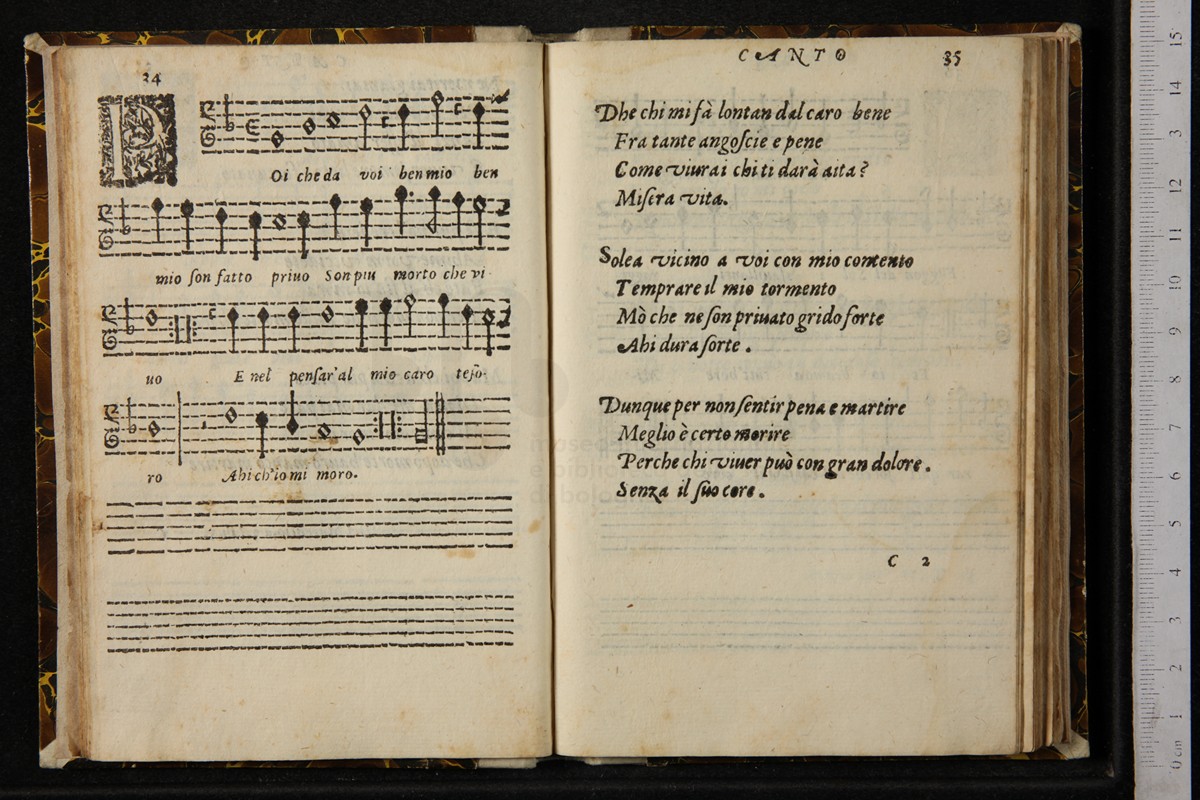 34
POi che da voi ben mio ben
mio ſon fatto priuo Son piu morto che vi
uo E nel penſar'al mio caro teſo-
ro Ahi ch'io mi moro.
CANTO
35
Dhe chi mi fà lontan dal caro bene
Fra tante angoſcie e pene
Come viurai chi ti darà aita?
Miſera vita.
Solea vicino a voi con mio contento
Temprare il mio tormento
Mò che ne ſon priuato grido forte
Ahi dura ſorte.
Dunque per non ſentir pena e martire
Meglio è certo morire
Perche chi viuer può con gran dolore.
Senza il ſuo core.
C 2
15
14
13
12
11
10
9
8
7
6
5
4
3
2
1
0 cm